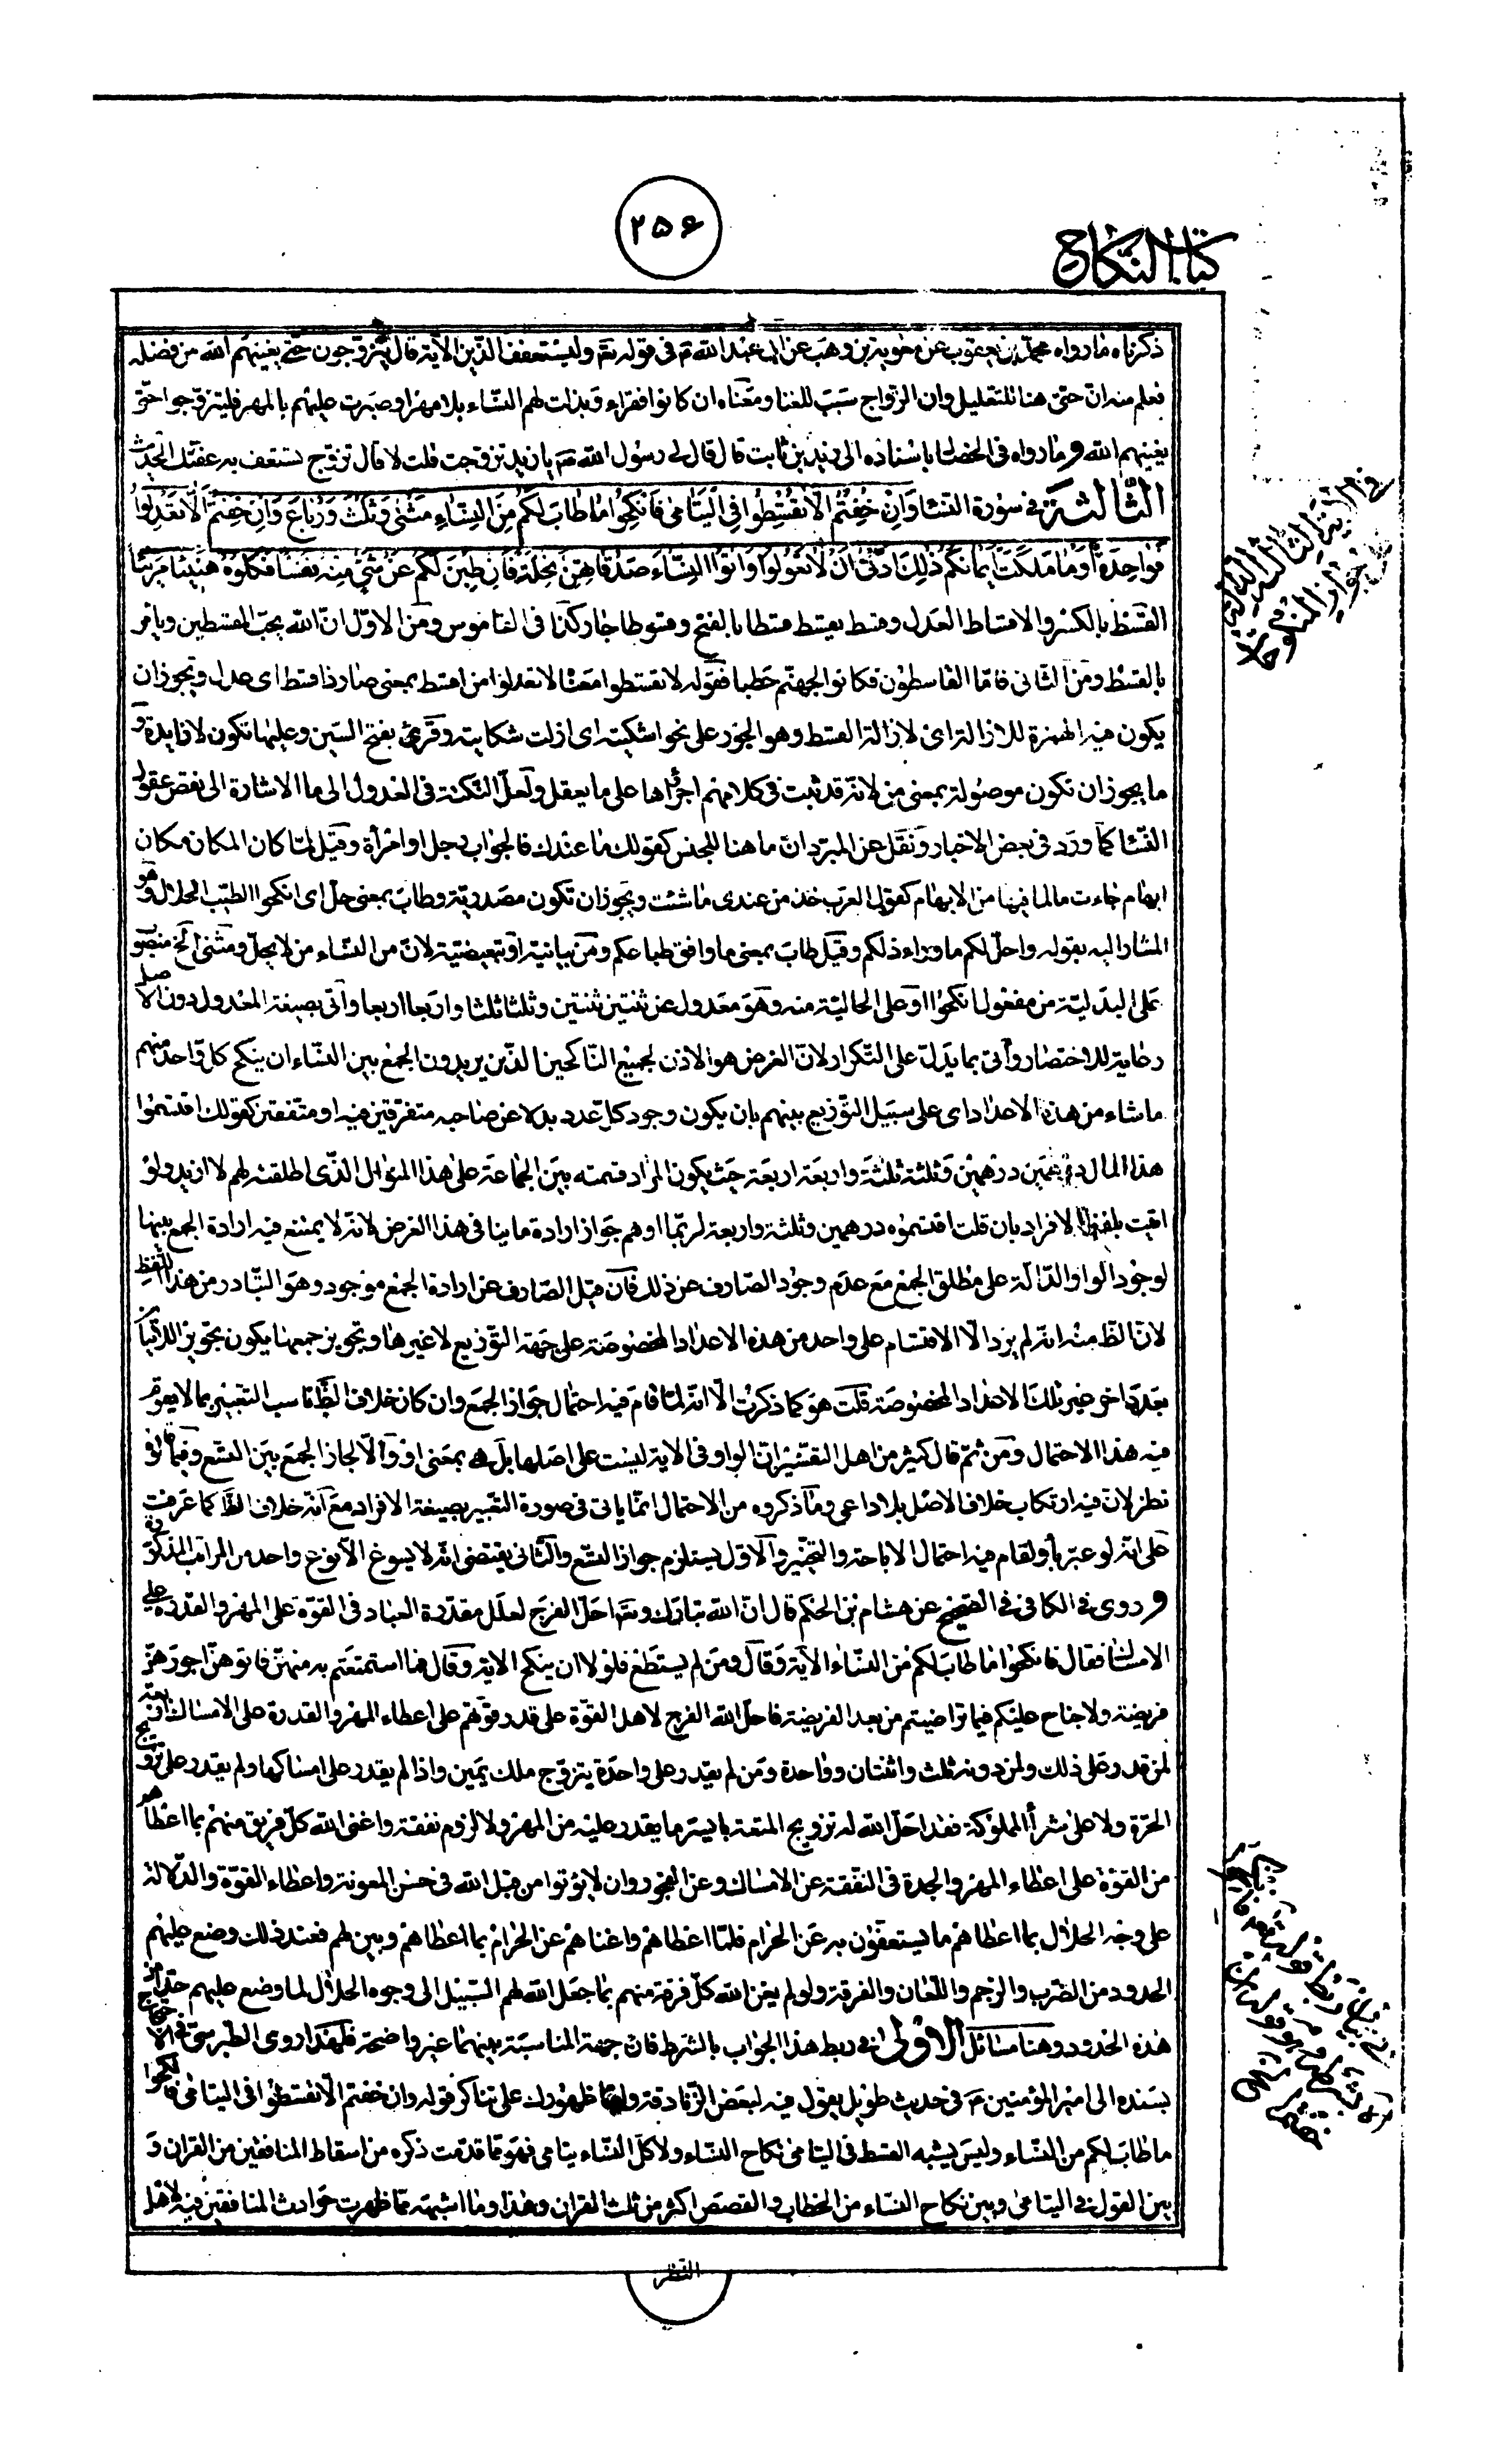 ۲۵۶
كتاب النكاح
ذكرناه ما رواه محمد بن يعقوب عن معوية بن وهب عن ابى عبد الله ع فى قوله تع وليستعفف الذين الآية قال يتزوجون حتى يغنيهم الله من فضله
فعلم منه ان حتى هنا للتعليل وان الزواج سبب للغنا ومعناه ان كانوا فقراء وبذلت لهم النساء بلا مهر او صبرت عليهم بالمهر فليتزوجوا حتى
يغنيهم الله و ما رواه فى الخصال باسناده الى زيد بن ثابت قال قال لى رسول الله ص يا زيد تزوجت قلت لا قال تزوج تستعف به عفتك الحديث
الثالثة فى سورة النساء وَاِنْ خِفْتُمْ اَلّا تُقْسِطُوا فِى الْيَتامى فَانْكِحُوا ما طابَ لَكُمْ مِنَ النِّساءِ مَثْنى وَثُلثَ وَرُباعَ وَاِنْ خِفْتُمْ اَلّا تَعْدِلُوا
فَواحِدَةً اَوْ ما مَلَكَتْ اَيْمانُكُمْ ذلِكَ اَدْنى اَنْ لا تَعُولُوا وَاتُوا النِّساءَ صَدُقاتِهِنَّ نِحْلَةً فَاِنْ طِبْنَ لَكُمْ عَنْ شَيْءٍ مِنْهُ نَفْسًا فَكُلُوهُ هَنيئًا مَريئًا
القسط بالكسر والاقساط العدل وقسط يقسط قسطا بالفتح وقسوطا جار كذا فى القاموس ومن الاول ان الله يحب المقسطين ويامر
بالقسط ومن الثانى فاما القاسطون فكانوا لجهنم حطبا فقوله لا تقسطوا معناه لا تعدلوا من اقسط بمعنى صار ذا قسط اى عدل ويجوز ان
يكون فيه الهمزة للازالة اى لازالة القسط وهو الجور على نحو اشكيته اى ازلت شكايته وقرئ بفتح التاء وعليها تكون لا زايدة و
ما يجوز ان تكون موصولة بمعنى من لانه قد ثبت فى كلامهم اجراها على ما يعقل ولعل النكتة فى العدول الى ما الاشارة الى نقص عقول
النساء كما ورد فى بعض الاخبار ونقل عن المبرد ان ما هنا للجنس كقولك ما عندك فالجواب رجل او امرأة وقيل لما كان المكان مكان
ابهام جاءت ما لما فيها من الابهام كقول العرب خذ من عندى ما شئت ويجوز ان تكون مصدرية وطاب بمعنى حل اى انكحوا الطيب الحلال وهو
المشار اليه بقوله واحل لكم ما وراء ذلكم وقيل طاب بمعنى ما وافق طباعكم ومن بيانية او تبعيضية لان من النساء من لا يحل ومثنى الخ منصوب
على البدلية من مفعول انكحوا او على الحالية منه وهو معدول عن ثنتين ثنتين وثلثا ثلثا واربعا اربعا وأتى بصيغة المعدول دون الاصل
رعاية للاختصار وأتى بما يدل على التكرار لان الغرض هو الاذن لجميع الناكحين الذين يريدون الجمع بين النساء ان ينكح كل واحد منهم
ما شاء من هذه الاعداد اى على سبيل التوزيع بينهم بان يكون وجود كل عدد بدلا عن صاحبه متفرقين فيه او متفقين كقولك اقتسموا
هذا المال درهمين درهمين وثلثة ثلثة واربعة اربعة حيث يكون المراد قسمته بين الجماعة على هذا المنوال الذى اطلقته لهم لا ازيد ولو
اتيت بلفظ الافراد بان قلت اقتسموه درهمين وثلثة واربعة لربما اوهم جواز ارادة ما ينافى هذا الغرض لانه لا يمتنع فيه ارادة الجمع بينها
لوجود الواو الدالة على مطلق الجمع مع عدم وجود الصارف عن ذلك فان قيل الصارف عن ارادة الجمع موجود وهو التبادر من هذا اللفظ
لان الظ منه انه لم يرد الا الاقتسام على واحد من هذه الاعداد المخصوصة على جهة التوزيع لا غيرها وتجويز جمعها يكون تجويز للاتيان
بعدد اخر غير تلك الاعداد المخصوصة قلت هو كما ذكرت الا انه لما قام فيه احتمال جواز الجمع وان كان خلاف الظ ناسب التعبير بما لا يقوم
فيه هذا الاحتمال ومن ثم قال كثير من اهل التفسير ان الواو فى الاية ليست على اصلها بل هى بمعنى او والا لجاز الجمع بين التسع وفيما قالوه
نظر لان فيه ارتكاب خلاف الاصل بلا داعى وما ذكروه من الاحتمال انما ياتى فى صورة التعبير بصيغة الافراد مع انه خلاف الظ كما عرفت
على انه لو عبر بأو لقام فيه احتمال الاباحة والتخيير والاول يستلزم جواز التسع والثانى يقتضى انه لا يسوغ الا نوع واحد من المراتب المذكورة
و روى فى الكافى فى الصحيح عن هشام بن الحكم قال ان الله تبارك وتعالى احل الفرج لعلل مقدرة العباد فى القوة على المهر والقدرة على
الامساك فقال فانكحوا ما طاب لكم من النساء الآية وقال ومن لم يستطع منكم طولا ان ينكح الاية وقال فما استمتعتم به منهن فاتوهن اجورهن
فريضة ولا جناح عليكم فيما تراضيتم من بعد الفريضة فاحل الله الفرج لاهل القوة على قدر قوتهم على اعطاء المهر والقدرة على الامساك اربعة
لمن قدر على ذلك ولمن دونه ثلث واثنتان وواحدة ومن لم يقدر على واحدة يتزوج ملك يمين واذا لم يقدر على امساكها ولم يقدر على تزويج
الحرة ولا على شرأ المملوكة فقد احل الله له تزويج المتعة بايسر ما يقدر عليه من المهر ولا لزوم نفقة واغنى الله كل فريق منهم بما اعطاهم
من القوة على اعطاء المهر والجدة فى النفقة عن الامساك وعن الفجور وان لا يؤتوا من قبل الله فى حسن المعونة واعطاء القوة والدلالة
على وجه الحلال بما اعطاهم ما يستعفون به عن الحرام فلما اعطاهم واغناهم عن الحرام بما اعطاهم وبين لهم فعند ذلك وضع عليهم
الحدود من الضرب والرجم واللعان والفرقة ولو لم يغن الله كل فرقة منهم بما جعل الله لهم السبيل الى وجوه الحلال لما وضع عليهم حدا من
هذه الحدود وهنا مسائل الاولى فى ربط هذا الجواب بالشرط فان جهة المناسبة بينهما غير واضحة فلهذا روى الطبرسى فى الاحتجاج
بسنده الى امير المؤمنين ع فى حديث طويل يقول فيه لبعض الزنادقة واما ظهورك على تناكر قوله وان خفتم الا تقسطوا فى اليتامى فانكحوا
ما طاب لكم من النساء وليس يشبه القسط فى اليتامى نكاح النساء ولا كل النساء يتامى فهو مما قدمت ذكره من اسقاط المنافقين من القران و
بين القول فى اليتامى وبين نكاح النساء من الخطاب والقصص اكثر من ثلث القران وهذا وما اشبهه مما ظهرت حوادث المنافقين فيه لاهل
النظر